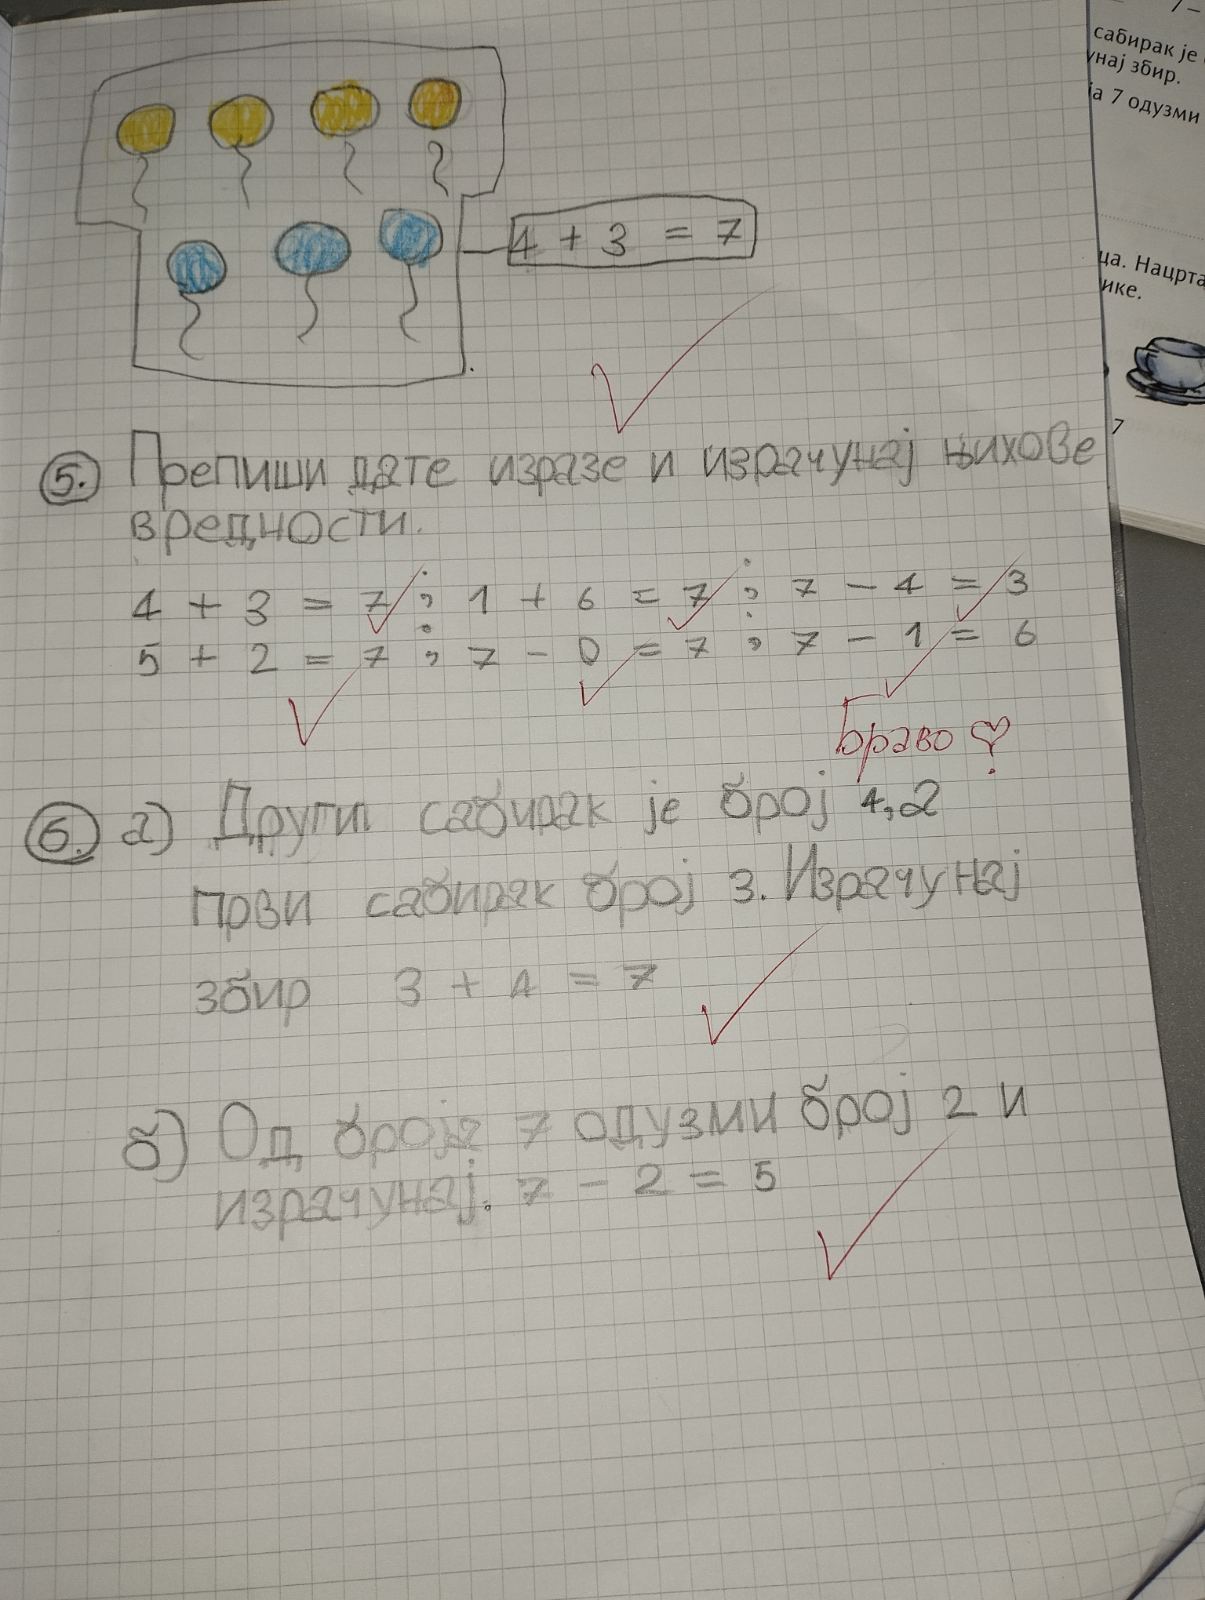 4 + 3 = 7
5. Препиши дате изразе и израчунај њихове
вредности.
4 + 3 = 7 ; 1 + 6 = 7 ; 7 - 4 = 3
5 + 2 = 7 ; 7 - 0 = 7 ; 7 - 1 = 6
Браво
6. а) Други сабирак је број 4, а
први сабирак број 3. Израчунај
збир 3 + 4 = 7
б) Од броја 7 одузми број 2 и
израчунај. 7 - 2 = 5
7 -
сабирак је
унај збир.
ја 7 одузми
ца. Нацрта
ике.
7